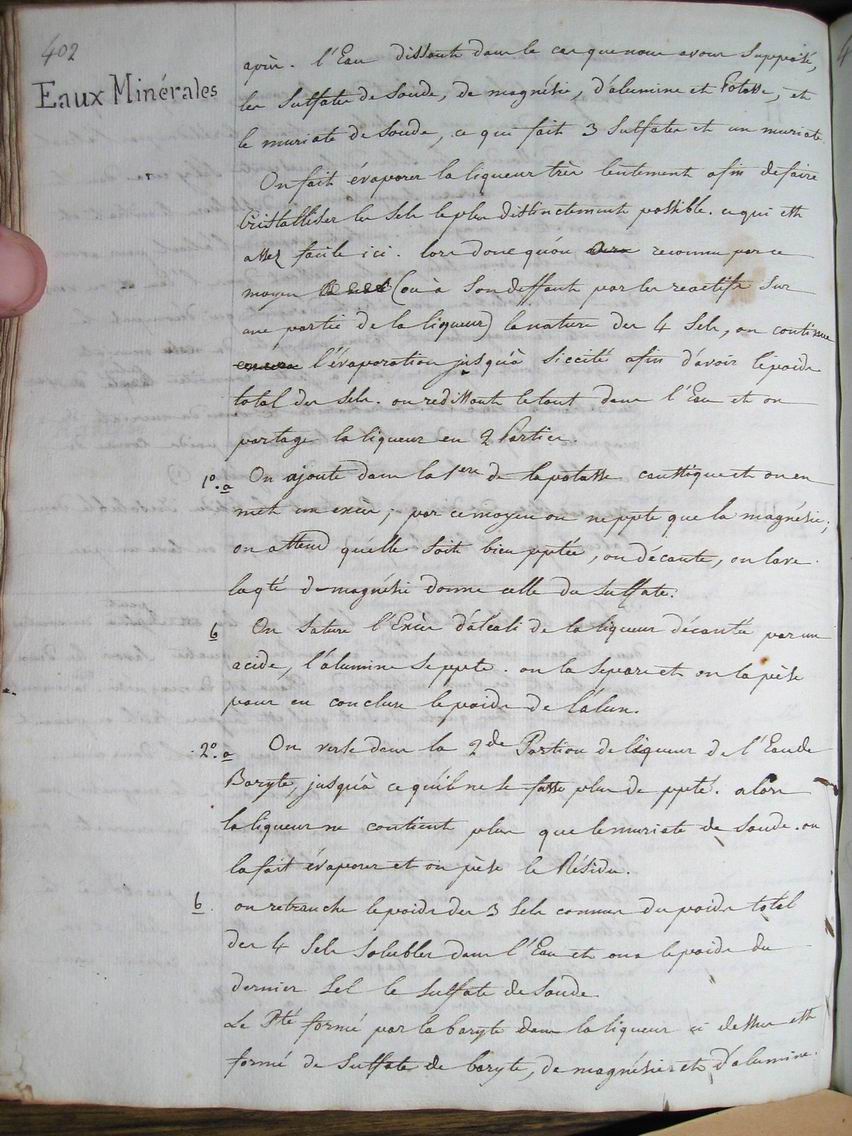 402
Eaux Minérales
après. l'Eau dissoute dans le cas que nous avons supposé,
les Sulfates de Soude, de magnésie, d'alumine et Potasse, et
le muriate de Soude, ce qui fait 3 Sulfates et un muriate
On fait évaporer la liqueur très lentement afin de faire
Cristalliser les Sels le plus distinctement possible. ce qui est
assez facile ici. lors donc qu'on reconnu par ce
moyen (ou à Son deffaut par les reactifs Sur
une partie de la liqueur) la nature des 4 Sels, on continue
l'évaporation jusqu'à Siccité afin d'avoir le poids
total des Sels. on redissout le tout dans l'Eau et on
partage la liqueur en 2 Parties.
1º. a On ajoute dans la 1ere de la potasse caustique et on en
met un excès; par ce moyen on ne ppte que la magnésie;
on attend qu'elle Soit bien pptée, on décante, on lave.
la qté de magnésie donne celle du Sulfate.
b On Sature l'Excès d'alcali de la liqueur décantée par un
acide, l'alumine Se ppte. on la Separe et on la pèse
pour en conclure le poids de l'alun.
2º. a On verse dans la 2de Portion de liqueur de l'Eau de
Baryte, jusqu'à ce qu'il ne se fasse plus de ppté. alors
la liqueur ne contient plus que le muriate de Soude. on
la fait évaporer et on pèse le Résidu.
b. on retranche le poids des 3 Sels connus du poids total
des 4 Sels Solubles dans l'Eau et on a le poids du
dernier Sel le Sulfate de Soude
Le Pté formé par la baryte dans la liqueur ci dessus est
formé de Sulfate de baryte, de magnésie et d'alumine.